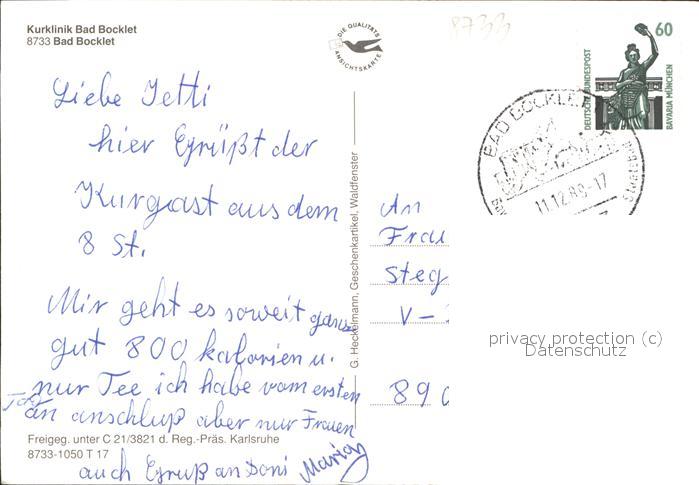 Kurklinik Bad Bocklet
8733 Bad Bocklet
DIE QUALITÄTS
ANSICHTSKARTE
8733
60
DEUTSCHE BUNDESPOST
BAVARIA MÜNCHEN
BAD BOCKLET
11.12.89-17
Liebe Jetti
hier Grüßt der
Kurgast aus dem
8 St.
Mir geht es soweit ganz
gut 800 kalorien u.
nur Tee ich habe vom ersten
Tag an anschluß aber nur Frauen
auch Gruß an Doni
G. Heckelmann, Geschenkartikel, Waldfenster
An
Frau
Steg
V-
890
privacy protection (c)
Datenschutz
Freigeg. unter C 21/3821 d. Reg.-Präs. Karlsruhe
8733-1050 T 17